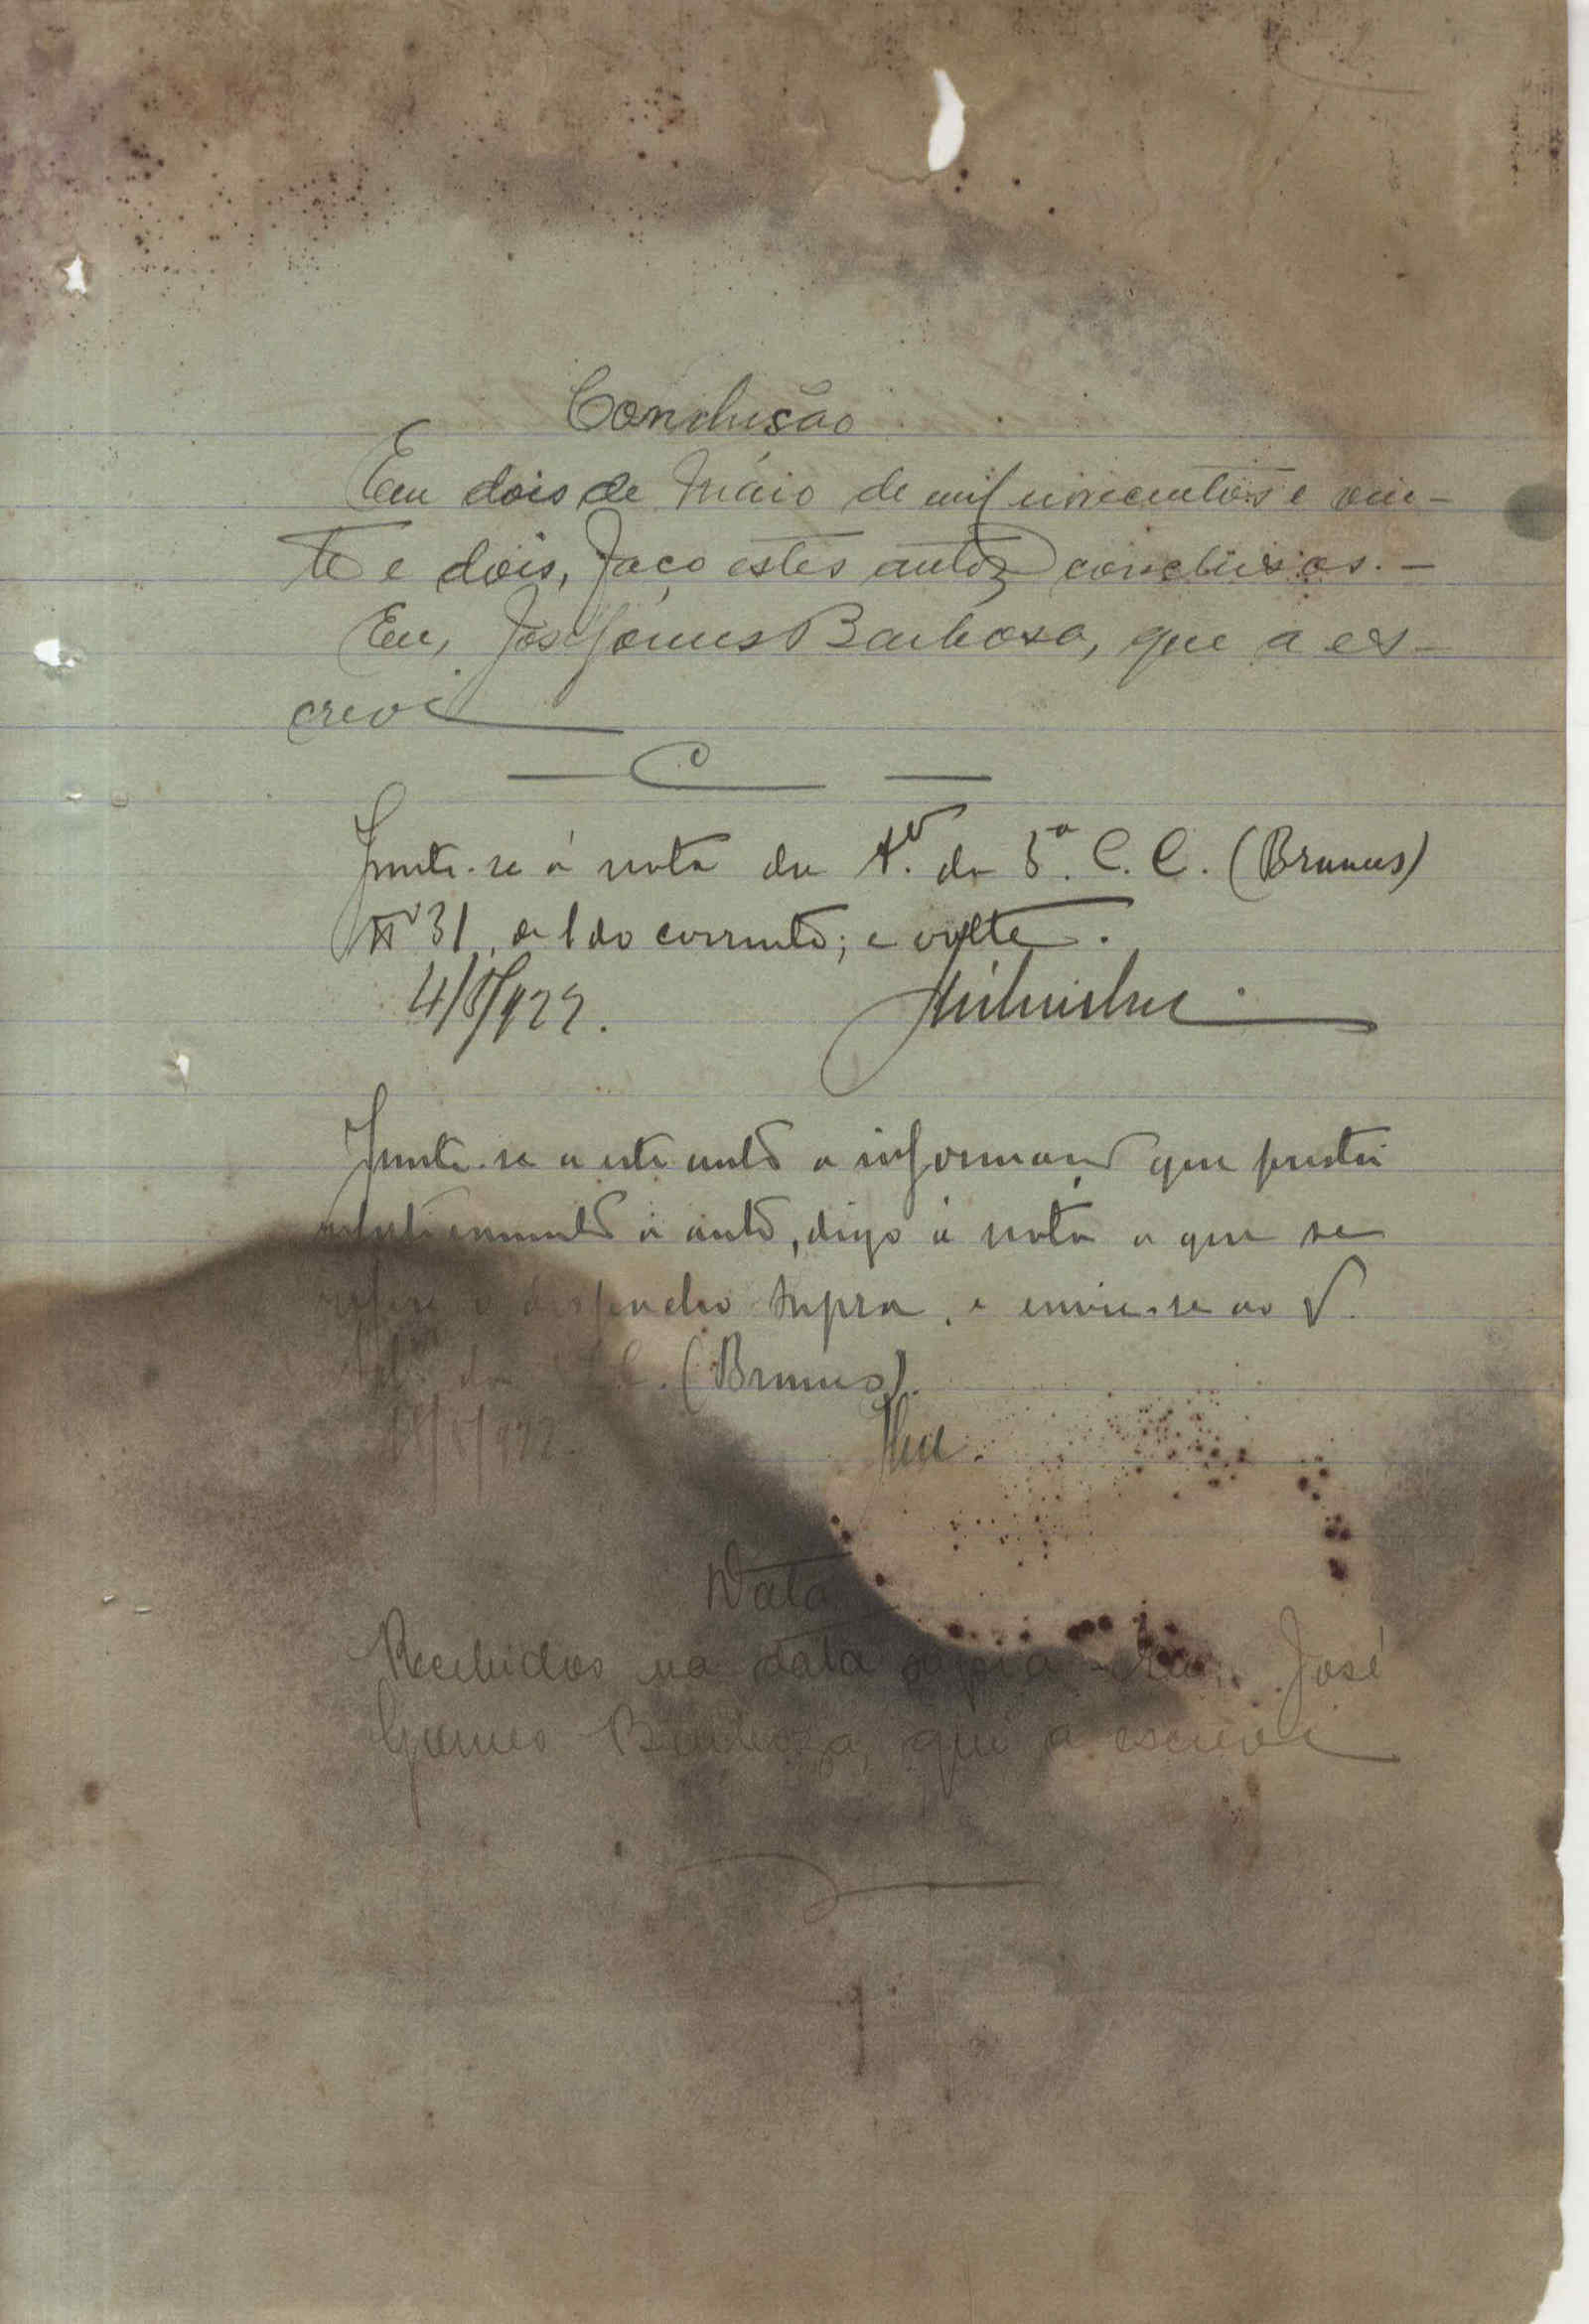 Conclusão
Em dois de Maio de mil novecentos e vin-
te e dois, faço estes autos conclusos. -
Eu, José Gomes Barbosa, que a es-
crevi
C
Junte-se á nota da A. da 5ª. C. C. (Brumus)
Nº 31, de 1 do corrente; e volte.
4/5/922.
Junte-se a este auto a informação que prestei
á auto, digo á nota a que se
refere o despacho supra, e envie-se ao
da C. (Brumus).
/922.
Data
Recebidos na data supra. Eu, José
Gomes Barbosa, que a escrevi